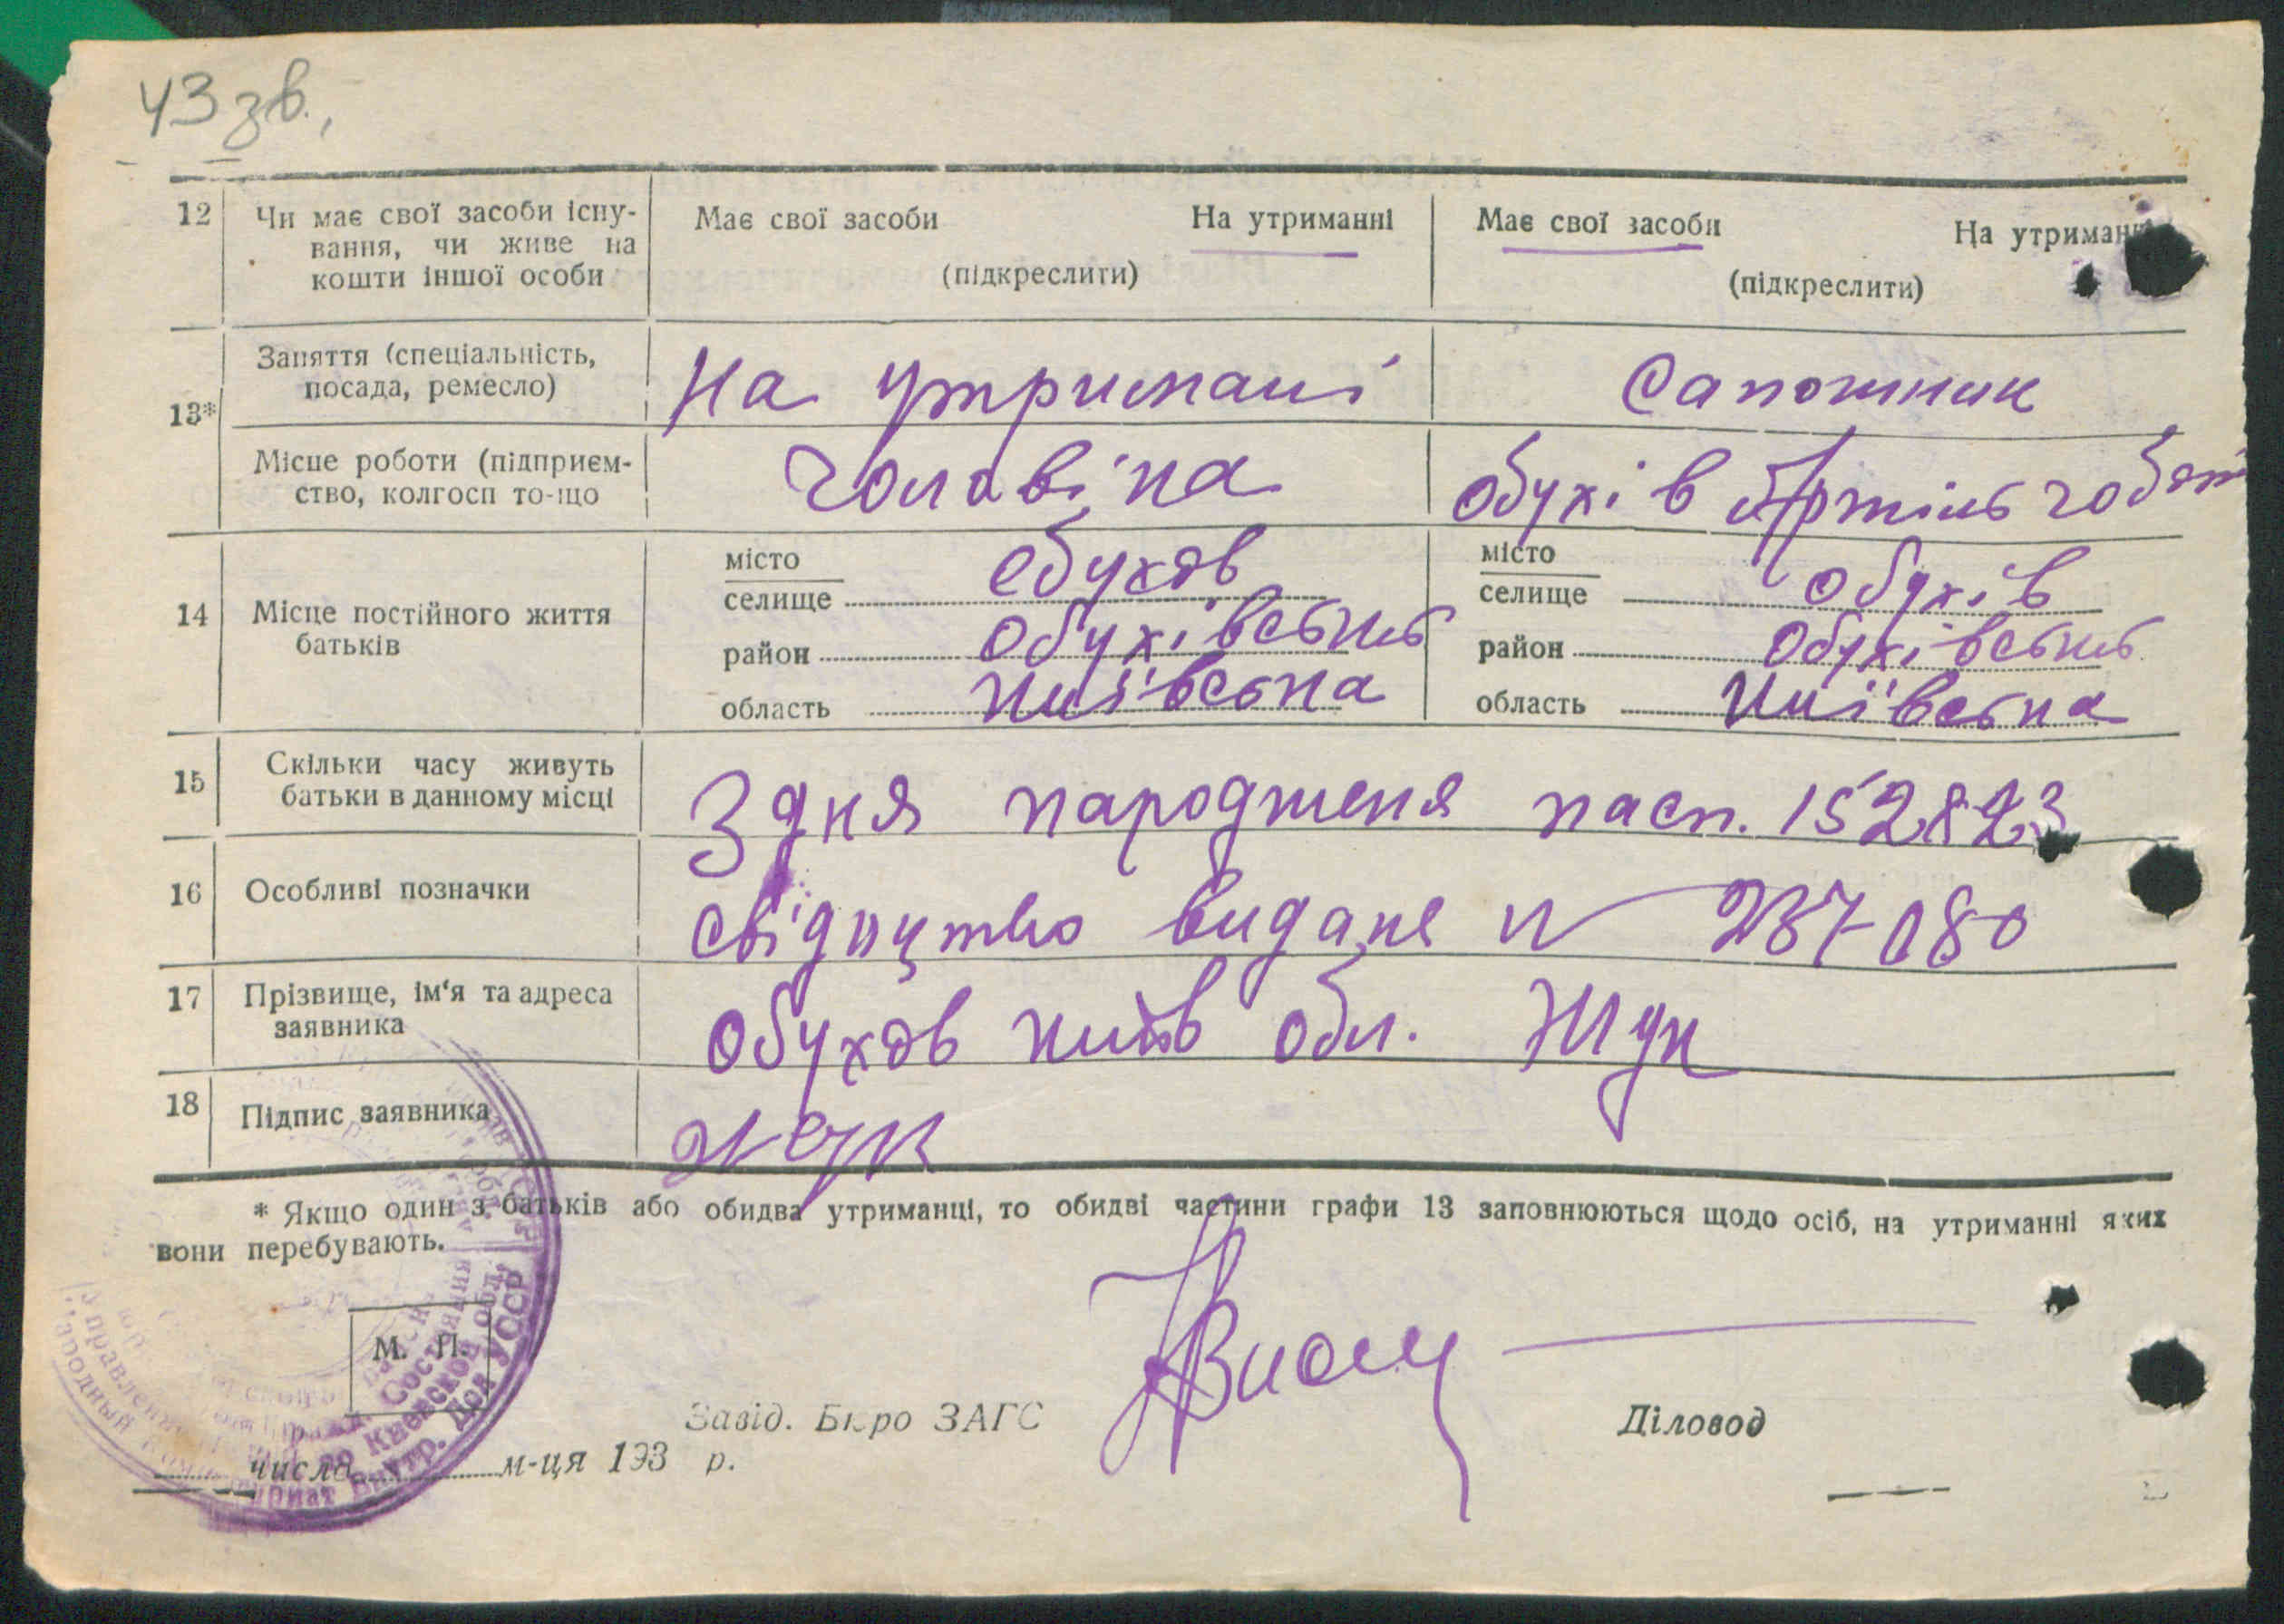 43 зв.,
12 Чи має свої засоби існу- Має свої засоби На утриманні Має свої засоби На утриманні
вання, чи живе на
кошти іншої особи (підкреслити) (підкреслити)
13* Заняття (спеціальність, На утримані Сапожник
посада, ремесло)
Місце роботи (підприєм- Чоловіка Обухів Артіль чобот
ство, колгосп то-що
14 Місце постійного життя
батьків
місто Обухов місто Обухів
селище селище
район Обухівськ район Обухівськ
область Київська область Київська
15 Скільки часу живуть З дня народженя пасп. 152823
батьки в данному місці
16 Особливі позначки свідоцтво видане № 237080
17 Прізвище, ім‘я та адреса Обухов Київ обл. Жук
заявника
18 Підпис заявника Жук
* Якщо один з батьків або обидва утриманці, то обидві частини графи 13 заповнюються щодо осіб, на утриманні яких
вони перебувають.
М. П.
Завід. Бюро ЗАГС Діловод
числа м-ця 193 р.